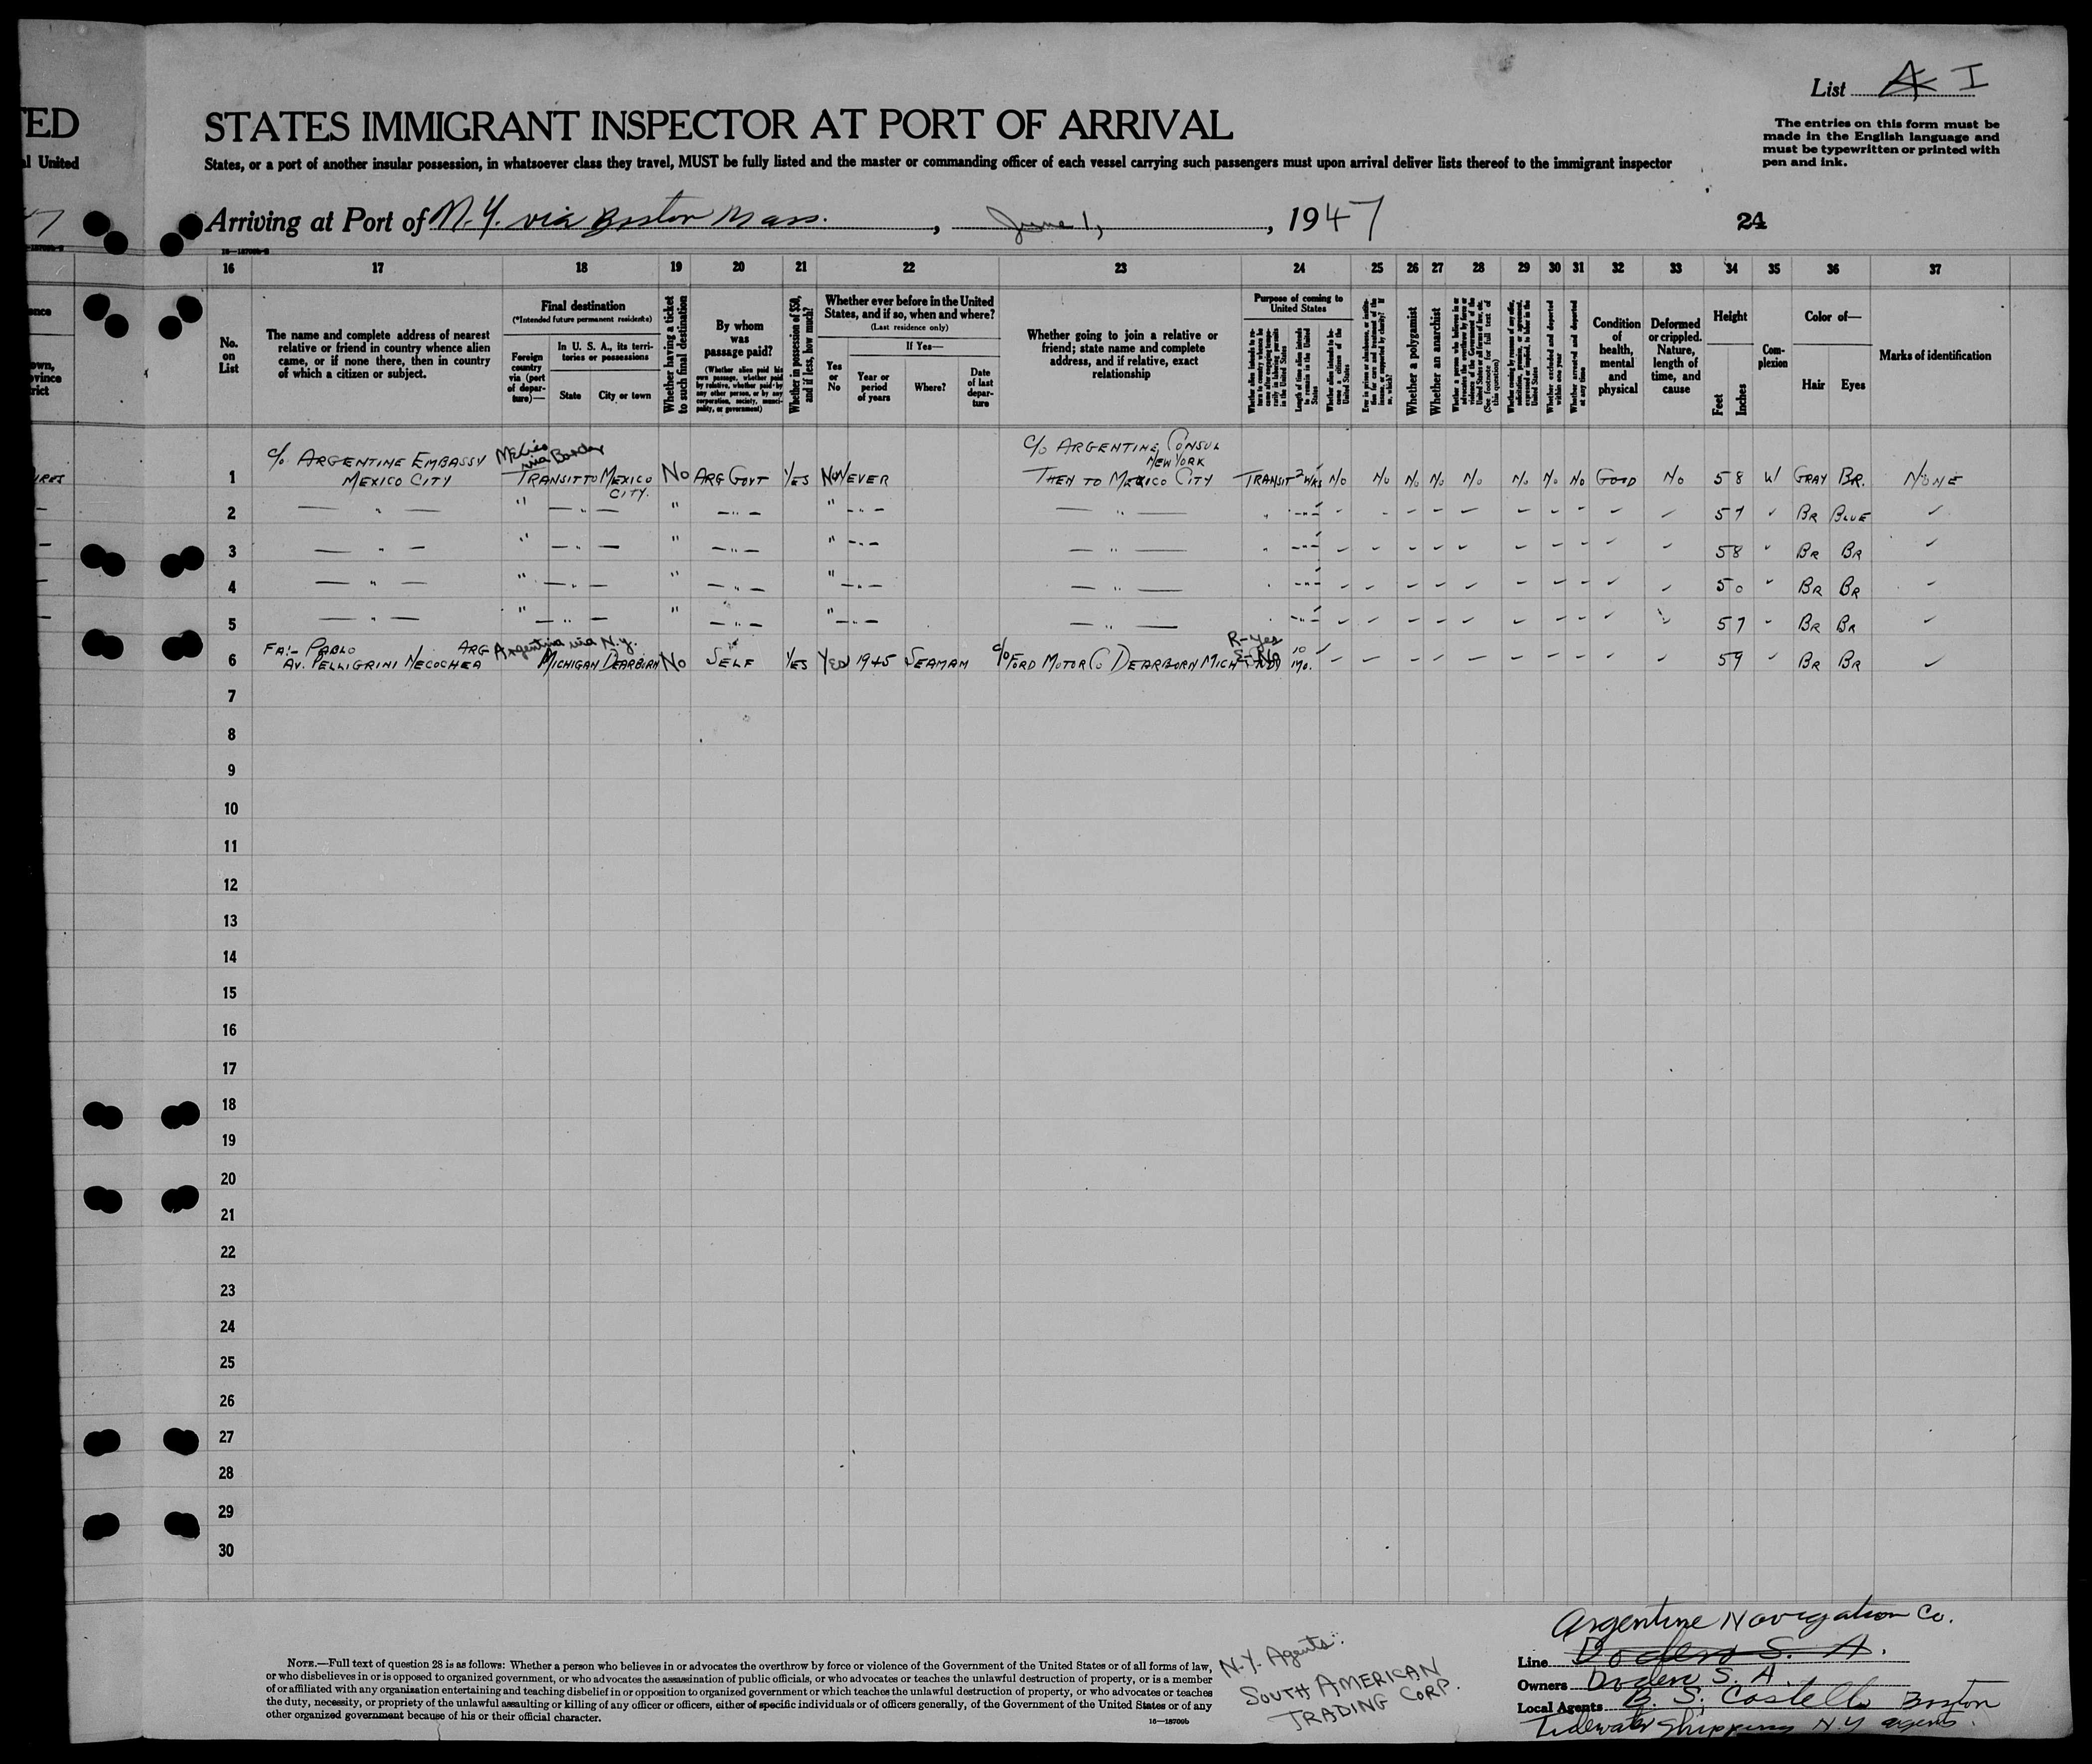 TED
al United
47
List A I
STATES IMMIGRANT INSPECTOR AT PORT OF ARRIVAL
The entries on this form must be
made in the English language and
must be typewritten or printed with
pen and ink.
States, or a port of another insular possession, in whatsoever class they travel, MUST be fully listed and the master or commanding officer of each vessel carrying such passengers must upon arrival deliver lists thereof to the immigrant inspector
Arriving at Port of N.Y. via Boston Mass. , June 1, , 1947
24
16 17 18 19 20 21 22 23 24 25 26 27 28 29 30 31 32 33 34 35 36 37
No. on List
The name and complete address of nearest
relative or friend in country whence alien
came, or if none there, then in country
of which a citizen or subject.
Final destination
(*Intended future permanent residence)
Foreign country via (port of departure)—
In U. S. A., its territories or possessions
State City or town
Whether having a ticket to such final destination
By whom was passage paid?
(Whether alien paid his own passage, whether paid by relative, whether paid by any other person, or by any corporation, society, municipality, or government)
Whether in possession of $50, and if less, how much?
Whether ever before in the United
States, and if so, when and where?
(Last residence only)
Yes or No
If Yes—
Year or period of years
Where?
Date of last departure
Whether going to join a relative or
friend; state name and complete
address, and if relative, exact
relationship
Purpose of coming to United States
Length of time alien intends to remain in the United States
Whether alien intends to become a citizen of the United States
Whether a polygamist
Whether an anarchist
Whether excluded and deported within one year
Whether arrested and deported at any time
Condition of health, mental and physical
Deformed or crippled. Nature, length of time, and cause
Height
Feet Inches
Complexion
Color of—
Hair Eyes
Marks of identification
C/O ARGENTINE CONSUL
NEW YORK
Mexico via Border
1 c/o ARGENTINE EMBASSY
MEXICO CITY TRANSIT TO MEXICO CITY. No ARG GOVT YES No NEVER THEN TO MEXICO CITY TRANSIT 2 WKS No No No No No No No No GOOD No 5 8 W GRAY BR. NONE
2 — " — " — " — " — " " — " — — " — " 5 7 BR BLUE
3 — " — " — " — " — " " — " — — " — " 5 8 BR BR
4 — " — " — " — " — " " — " — — " — 5 0 BR BR
5 — " — " — " — " — " " — " — — " — 5 7 BR BR
6 FA:- PABLO ARG Argentina via N.Y. R-Yes
AV. PELLIGRINI NECOCHEA MICHIGAN DEARBORN No SELF YES YES 1945 SEAMAN c/o FORD MOTOR CO DEARBORN MICH S-No 10 Mo. 5 9 BR BR
7
8
9
10
11
12
13
14
15
16
17
18
19
20
21
22
23
24
25
26
27
28
29
30
NOTE.—Full text of question 28 is as follows: Whether a person who believes in or advocates the overthrow by force or violence of the Government of the United States or of all forms of law,
or who disbelieves in or is opposed to organized government, or who advocates the assassination of public officials, or who advocates or teaches the unlawful destruction of property, or is a member
of or affiliated with any organization entertaining and teaching disbelief in or opposition to organized government or which teaches the unlawful destruction of property, or who advocates or teaches
the duty, necessity, or propriety of the unlawful assaulting or killing of any officer or officers, either of specific individuals or of officers generally, of the Government of the United States or of any
other organized government because of his or their official character.
16—18709b
N.Y. Agents:
SOUTH AMERICAN
TRADING CORP.
Argentine Navigation Co.
Line Dodero S. A.
Owners Dodero S. A.
Local Agents B. S. Costello Boston
Tidewater Shipping N.Y agents.